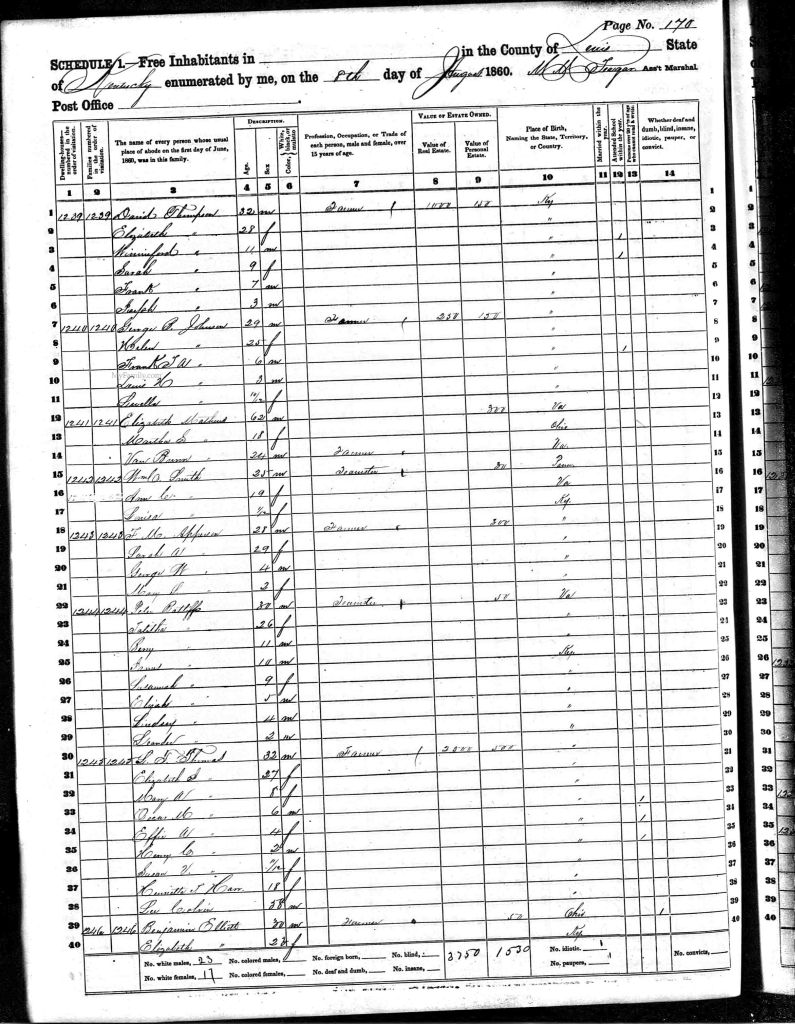 Page No. 170
SCHEDULE 1.—Free Inhabitants in in the County of Lewis State
of Kentucky enumerated by me, on the 8th day of August 1860. Ass't Marshal.
Post Office
DESCRIPTION. VALUE OF ESTATE OWNED.
Dwelling-houses—numbered in the order of visitation. Families numbered in the order of visitation. The name of every person whose usual place of abode on the first day of June, 1860, was in this family. Age. Sex. Color, White, black, or mulatto. Profession, Occupation, or Trade of each person, male and female, over 15 years of age. Value of Real Estate. Value of Personal Estate. Place of Birth, Naming the State, Territory, or Country. Married within the year. Attended School within the year. Persons over 20 y'rs of age who cannot read & write. Whether deaf and dumb, blind, insane, idiotic, pauper, or convict.
1 2 3 4 5 6 7 8 9 10 11 12 13 14
1 1239 1239 David Thompson 32 m Farmer 1000 150 Ky 1
2 Elizabeth " 28 f " 2
3 " 11 m " 1 3
4 Sarah " 9 f " 1 4
5 Frank " 7 m " 5
6 Joseph " 3 m " 6
7 1240 1240 George B. Johnson 29 m Farmer 250 150 " 7
8 Helen " 25 f " 8
9 Frank T A " 6 m " 1 9
10 Lewis H " 3 m " 10
11 Louella " 10/12 f " 11
12 1241 1241 Elizabeth Mathews 62 300 Va 12
13 Martha " 18 f Ohio 13
14 Van Buren " 24 m Farmer Va 14
15 1242 1242 Wm Smith 25 m Teamster 30 15
16 Ann " 19 f Va 16
17 Louisa " f Ky 17
18 1243 1243 F. M. Apperson 28 m Farmer 300 " 18
19 Sarah A " 29 f " 19
20 George W " 4 m " 20
21 Mary " 2 f " 21
22 1244 1244 Peter Ratliff 30 m Teamster 50 Va 22
23 Tabitha " 26 f " 23
24 Berry " 11 m " 24
25 " 10 m Ky 25
26 Susannah " 9 f " 26
27 Elijah " 5 m " 27
28 Lindsey " 4 m " 28
29 Leander " 2 m " 29
30 1245 1245 Thomas 32 m Farmer 2500 500 " 30
31 Elizabeth " 27 f " 31
32 Mary A " 8 f " 32
33 Oscar M " 6 m " 1 33
34 Effie A " 4 f " 1 34
35 Henry C " 2 m " 1 35
36 Susan V " f " 36
37 Henrietta 18 f " 37
38 Lee 38 m " 38
39 1246 1246 Benjamin Elliott 30 m Farmer 50 Ohio 1 39
40 Elizabeth " 23 f Ky 40
No. white males, 23 No. colored males, No. foreign born, No. blind, 3750 1530 No. idiotic, 1 No. convicts,
No. white females, 17 No. colored females, No. deaf and dumb, No. insane, No. paupers,